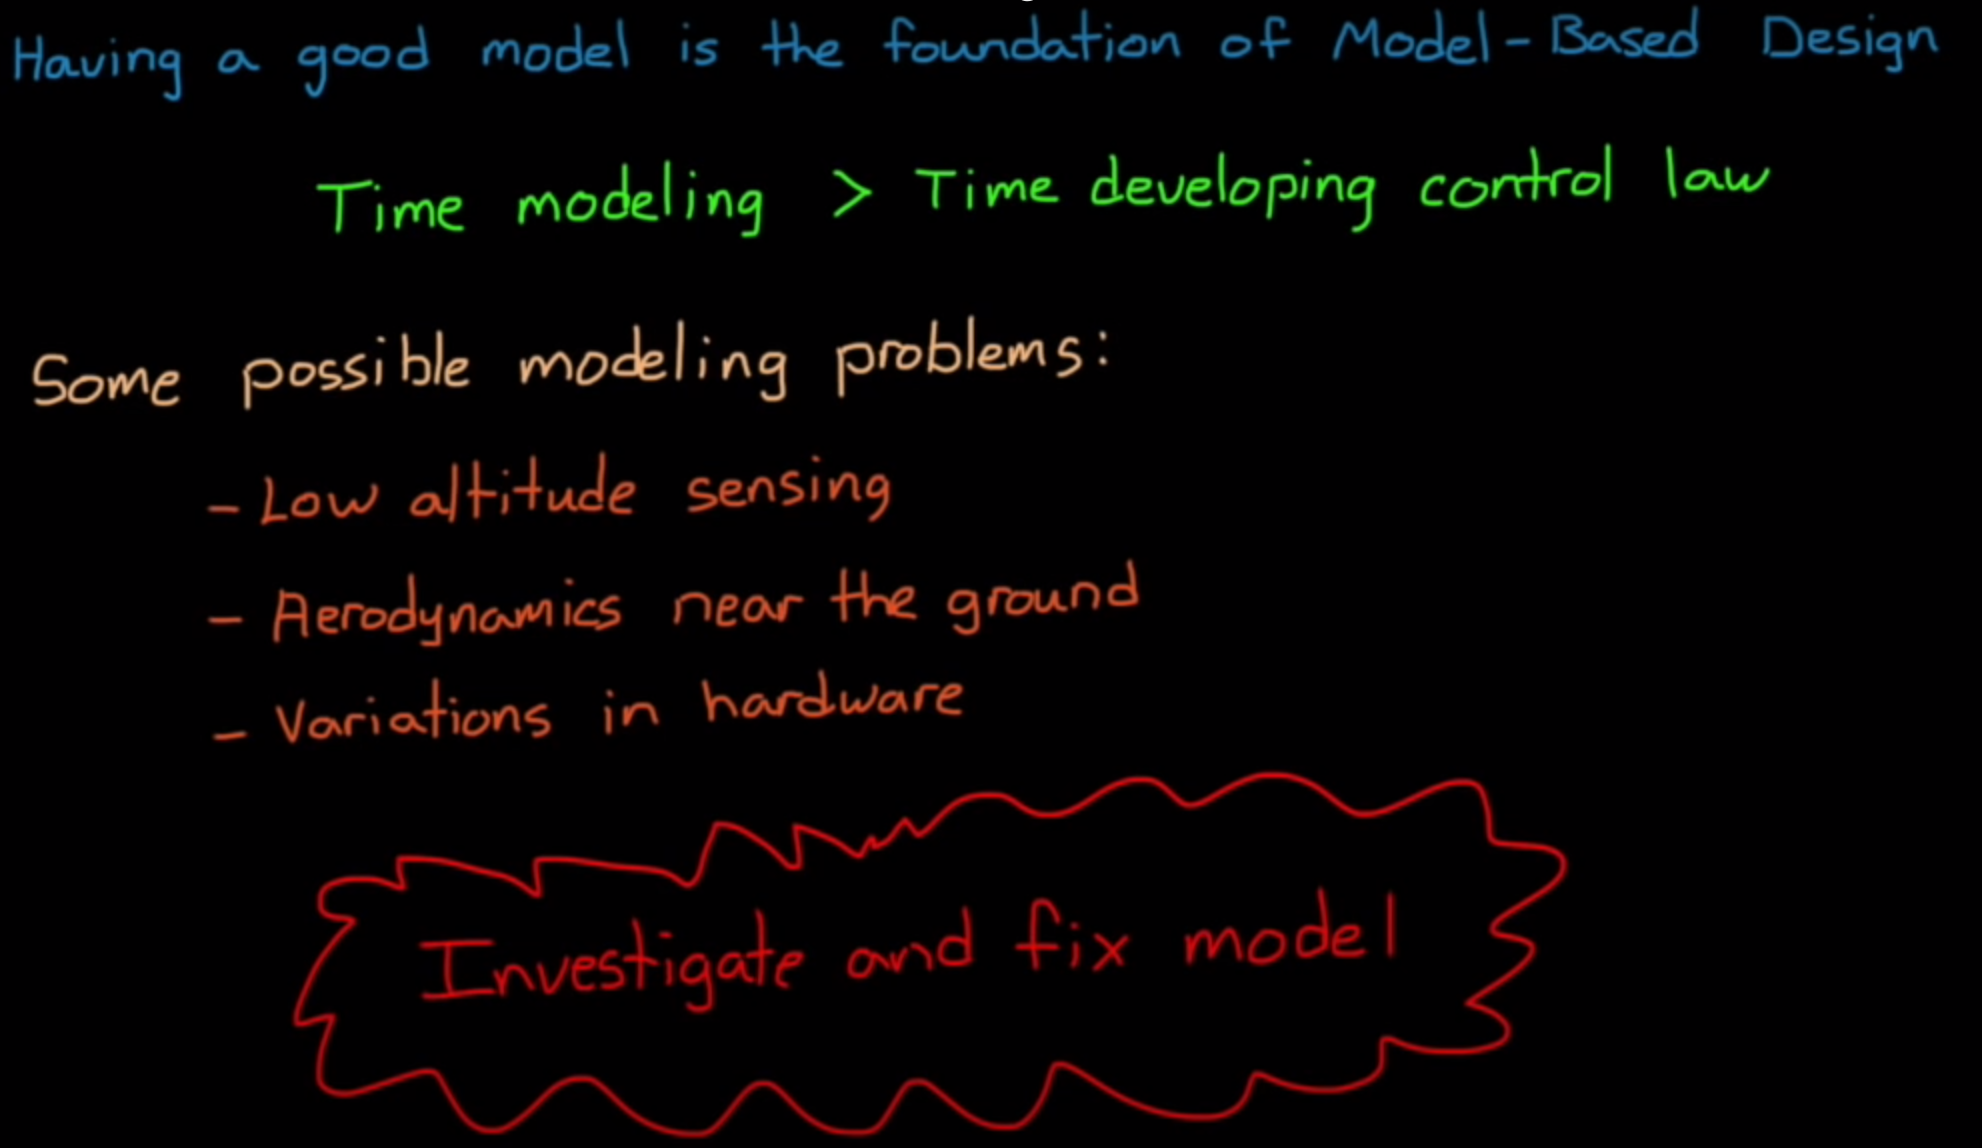 Having a good model is the foundation of Model-Based Design
Time modeling > Time developing control law
Some possible modeling problems:
- Low altitude sensing
- Aerodynamics near the ground
- Variations in hardware
Investigate and fix model